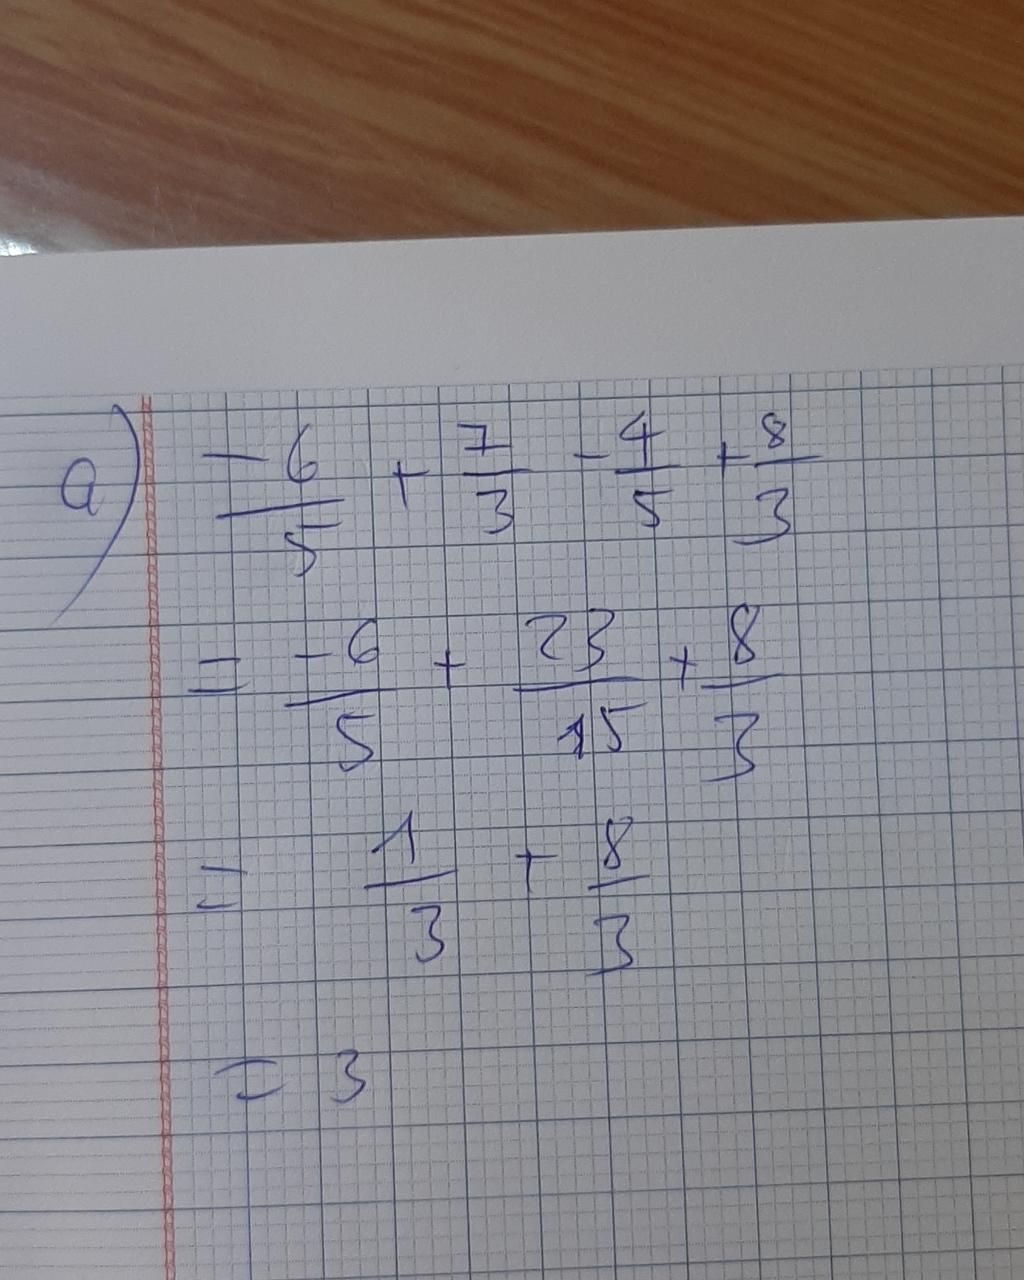 a) -6/5 + 7/3 - 4/5 + 8/3
= -6/5 + 23/15 + 8/3
= 1/3 + 8/3
= 3